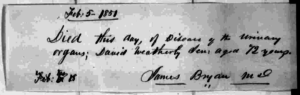 Feb. 5. 1851
Died this day, of Disease of the urinary
organs; David Weatherly Sen: aged 72 years.
Feb: 18
James Bryan M.D